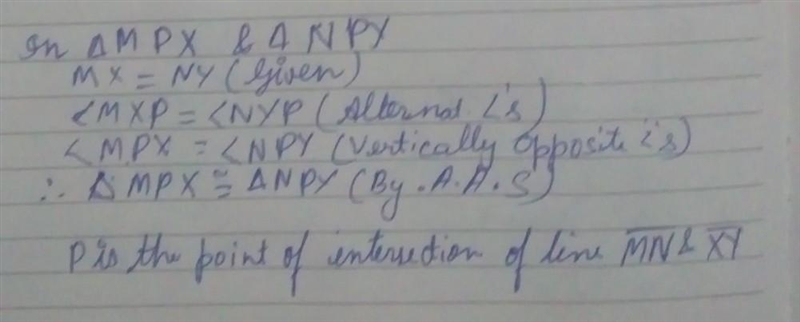 In ΔMPX & ΔNPY
MX = NY (Given)
<MXP = <NYP (Alternat. L's)
<MPX = <NPY (Vertically opposite L's)
∴ ΔMPX ≅ ΔNPY (By. A.A.S)
P is the point of intersection of line M̅N̅ & X̅Y̅